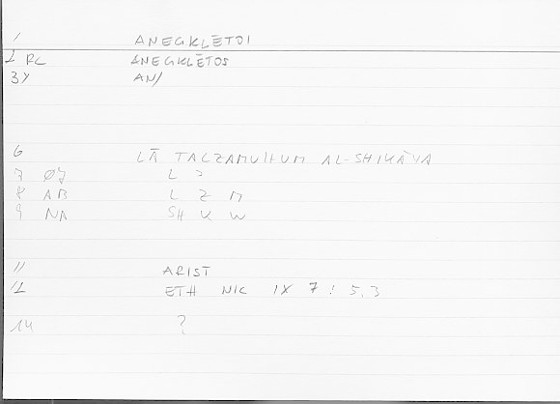 1 ANEGKLĒTOI
2 RC ANEGKLĒTOS
3Y AN/
6 LĀ TALZAMUHUM AL-SHIKĀYA
7 ØJ L ?
8 AB L Z M
9 NA SH K W
11 ARIST
12 ETH NIC IX 7 : 5,3
14 ?